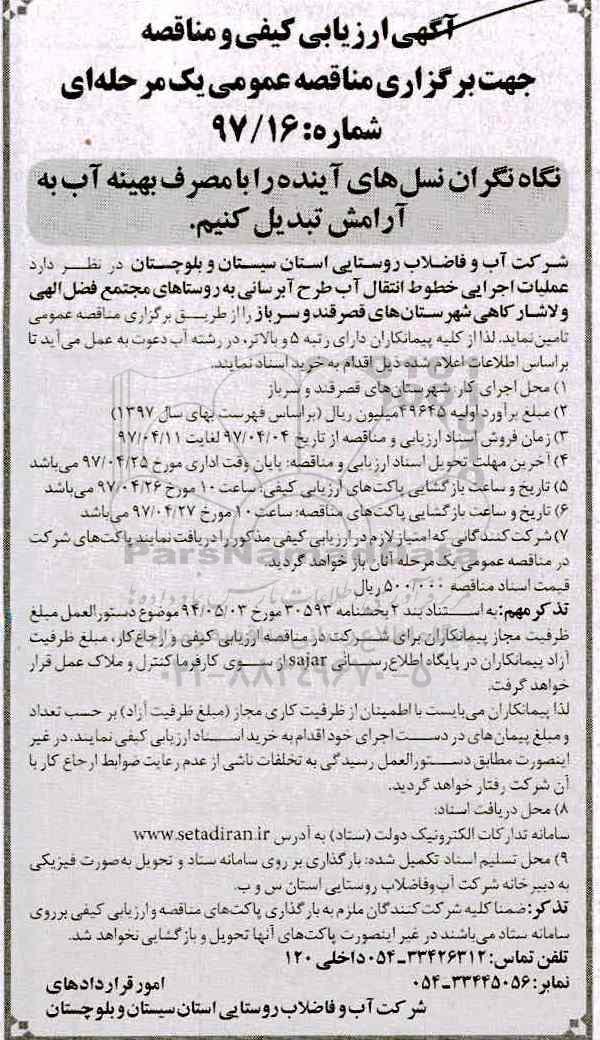 آگهی ارزیابی کیفی و مناقصه
جهت برگزاری مناقصه عمومی یک مرحله‌ای
شماره: ۹۷/۱۶
نگاه نگران نسل‌های آینده را با مصرف بهینه آب به
آرامش تبدیل کنیم.
شرکت آب و فاضلاب روستایی استان سیستان و بلوچستان در نظر دارد
عملیات اجرایی خطوط انتقال آب طرح آبرسانی به روستاهای مجتمع فضل الهی
و لاشار کاهی شهرستان‌های قصرقند و سرباز را از طریق برگزاری مناقصه عمومی
تامین نماید. لذا از کلیه پیمانکاران دارای رتبه ۵ و بالاتر، در رشته آب دعوت به عمل می‌آید تا
براساس اطلاعات اعلام شده ذیل اقدام به خرید اسناد نمایند.
۱) محل اجرای کار: شهرستان‌های قصرقند و سرباز
۲) مبلغ برآورد اولیه ۴۹۶۴۵میلیون ریال (براساس فهرست بهای سال ۱۳۹۷)
۳) زمان فروش اسناد ارزیابی و مناقصه از تاریخ ۹۷/۰۴/۰۴ لغایت ۹۷/۰۴/۱۱
۴) آخرین مهلت تحویل اسناد ارزیابی و مناقصه: پایان وقت اداری مورخ ۹۷/۰۴/۲۵ می‌باشد
۵) تاریخ و ساعت بازگشایی پاکت‌های ارزیابی کیفی: ساعت ۱۰ مورخ ۹۷/۰۴/۲۶ می‌باشد
۶) تاریخ و ساعت بازگشایی پاکت‌های مناقصه: ساعت ۱۰ مورخ ۹۷/۰۴/۲۷ می‌باشد
۷) شرکت کنندگانی که امتیاز لازم در ارزیابی کیفی مذکور را دریافت نمایند پاکت‌های شرکت
در مناقصه عمومی یک مرحله آنان باز خواهد گردید.
ParsNamadData
قیمت اسناد مناقصه ۵۰۰/۰۰۰ ریال
تذکر مهم: به استناد بند ۲ بخشنامه ۳۰۵۹۳ مورخ ۹۴/۰۵/۰۳ موضوع دستورالعمل مبلغ
ظرفیت مجاز پیمانکاران برای شرکت در مناقصه ارزیابی کیفی و ارجاع کار، مبلغ ظرفیت
آزاد پیمانکاران در پایگاه اطلاع رسانی sajar از سوی کارفرما کنترل و ملاک عمل قرار
خواهد گرفت.
۰۲۱-۸۸۳۴۹۶۷۰-۵
لذا پیمانکاران می‌بایست با اطمینان از ظرفیت کاری مجاز (مبلغ ظرفیت آزاد) بر حسب تعداد
و مبلغ پیمان‌های در دست اجرای خود اقدام به خرید اسناد ارزیابی کیفی نمایند. در غیر
اینصورت مطابق دستورالعمل رسیدگی به تخلفات ناشی از عدم رعایت ضوابط ارجاع کار با
آن شرکت رفتار خواهد گردید.
۸) محل دریافت اسناد:
سامانه تدارکات الکترونیک دولت (ستاد) به آدرس www.setadiran.ir
۹) محل تسلیم اسناد تکمیل شده: بارگذاری بر روی سامانه ستاد و تحویل به صورت فیزیکی
به دبیرخانه شرکت آب وفاضلاب روستایی استان س و ب.
تذکر: ضمنا کلیه شرکت کنندگان ملزم به بارگذاری پاکت‌های مناقصه و ارزیابی کیفی برروی
سامانه ستاد می‌باشند در غیر اینصورت پاکت‌های آنها تحویل و بازگشایی نخواهد شد.
تلفن تماس: ۳۳۴۲۶۳۱۲-۰۵۴ داخلی ۱۲۰
نمابر: ۳۳۴۴۵۰۵۶-۰۵۴
امور قراردادهای
شرکت آب و فاضلاب روستایی استان سیستان و بلوچستان